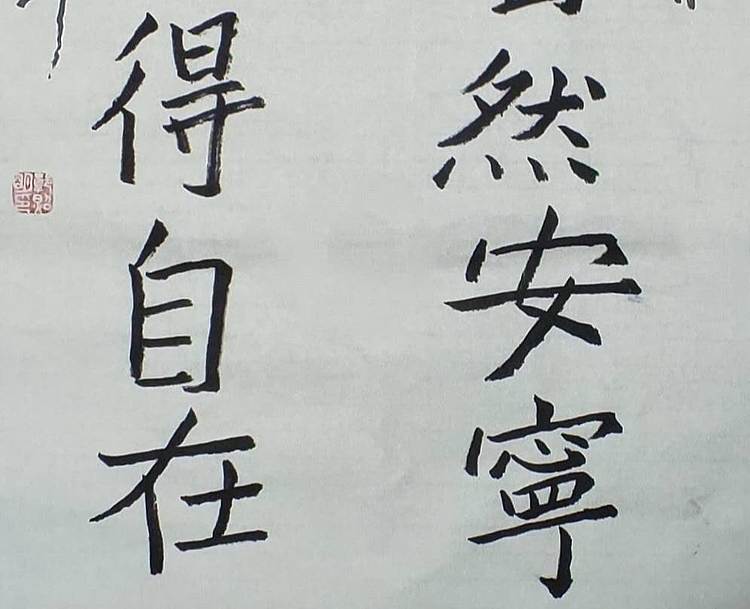 然安寧
得自在